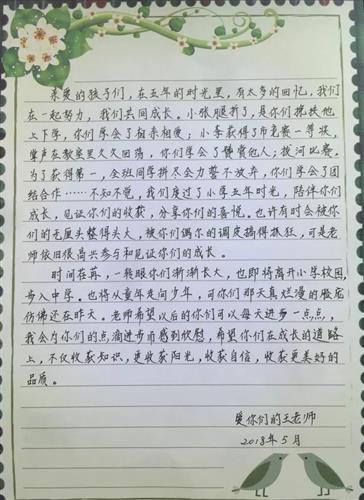 亲爱的孩子们，在五年的时光里，有太多的回忆，我们
在一起努力，我们共同成长。小张腿折了，是你们搀扶他
上下学，你们学会了相亲相爱；小李获得了市竞赛一等奖，
掌声在教室里久久回荡，你们学会了赞赏他人；拔河比赛，
为了获得第一，全班同学拼尽全力誓不放弃，你们学会了团
结合作……不知不觉，我们度过了小学五年时光，陪伴你们
成长，见证你们的收获，分享你们的喜悦。也许有时会被你
们的无厘头整得头大，被你们偶尔的调皮搞得抓狂，可是老
师依旧很高兴参与和见证你们的成长。
时间在苒，一转眼你们渐渐长大，也即将离开小学校园，
步入中学。也将从童年走向少年，可你们那天真烂漫的脸庞
仿佛还在昨天。老师希望以后的你们可以每天进步一点点，
我会为你们的点滴进步而感到欣慰，希望你们在成长的道路
上，不仅收获知识，更收获阳光，收获自信，收获更美好的
品质。
爱你们的王老师
2018年5月